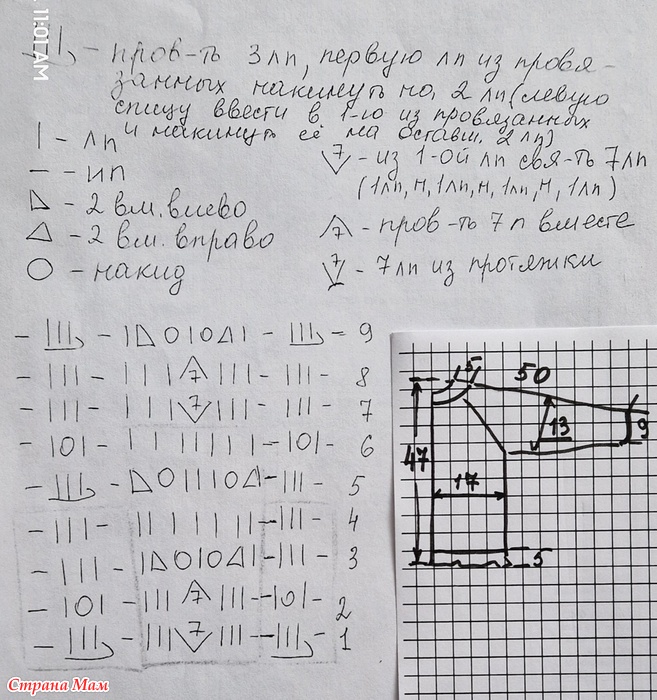 11:01 AM
|||, - пров-ть 3лп, первую лп из провя-
занных накинуть на 2 лп (левую
спицу ввести в 1-ю из провязанных
и накинуть её на оставш. 2 лп)
| - лп
— - ип
◺ - 2 вм. влево
△ - 2 вм. вправо
○ - накид
7 - из 1-ой лп свя-ть 7лп
(1лп, н, 1лп, н, 1лп, н, 1лп)
7 - пров-ть 7 п вместе
7 - 7лп из протяжки
- |||, - |◺○|○△| - |||, - 9
- ||| - |||7||| - ||| - 8
- ||| - |||7||| - ||| - 7
- |○| - ||||||| - |○| - 6
- |||, - ◺○|||○△ - ||| - 5
- ||| - ||||||| - ||| - 4
- ||| - |◺○|○△| - ||| - 3
- |○| - |||7||| - |○| - 2
- |||, - |||7||| - |||, - 1
50
13
9
47
17
5
Страна Мам